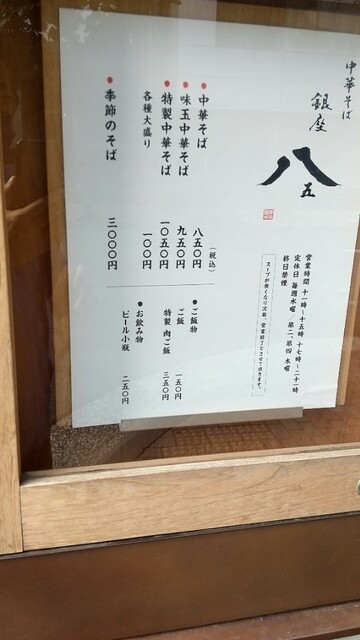 中華そば
銀座
八五
営業時間 十一時~十五時 十七時~二十一時
定休日 毎週水曜/第二、第四 木曜
終日禁煙
スープが無くなり次第、営業終了とさせて頂きます。
(税込)
中華そば 八五〇円
味玉中華そば 九五〇円
特製中華そば 一〇五〇円
各種大盛り 一〇〇円
季節のそば 三〇〇〇円
ご飯物
ご飯 一五〇円
特製 肉ご飯 三五〇円
お飲み物
ビール小瓶 二五〇円